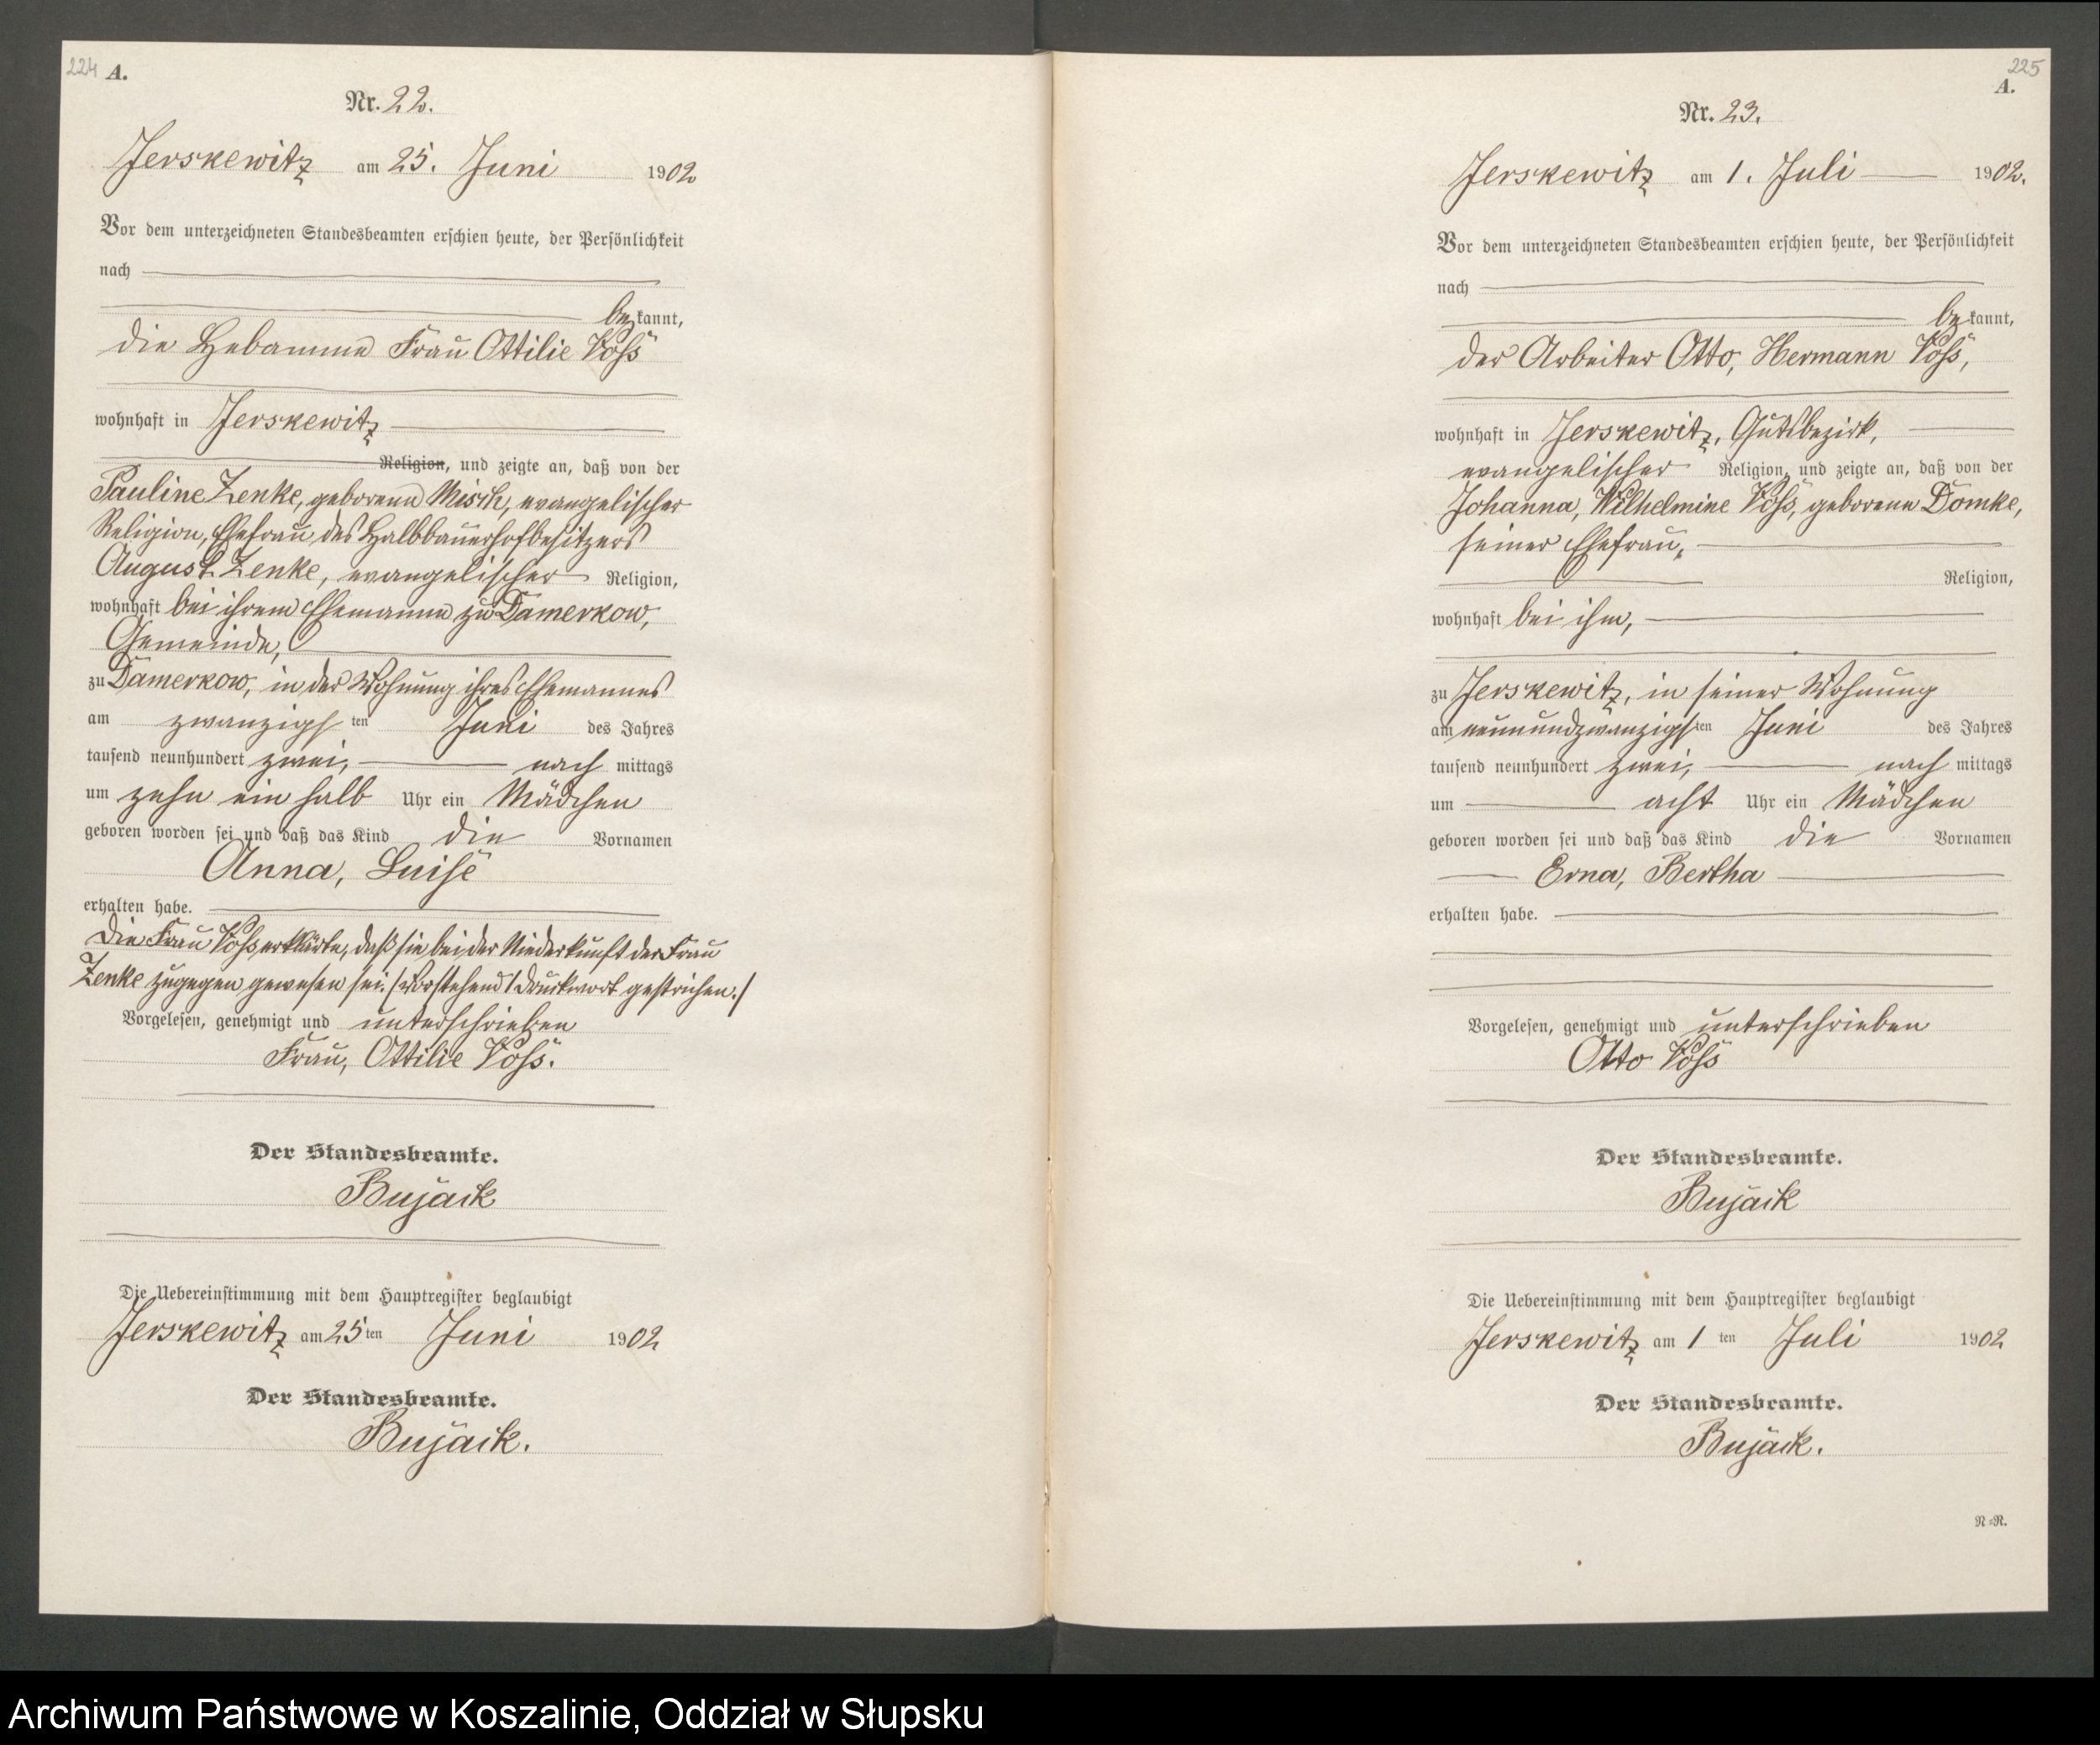 224 A.
Nr. 22.
Jerskewitz am 25. Juni 1902
Vor dem unterzeichneten Standesbeamten erschien heute, der Persönlichkeit
nach
bekannt,
die Hebamme Frau Ottilie Voß
wohnhaft in Jerskewitz
Religion, und zeigte an, daß von der
Pauline Zenke, geborene Misch, evangelischer
Religion, Ehefrau des Halbbauerhofbesitzers
August Zenke, evangelischer Religion,
wohnhaft bei ihrem Ehemanne zu Damerkow,
Gemeinde,
zu Damerkow, in der Wohnung ihres Ehemannes
am zwanzigsten Juni des Jahres
tausend neunhundert zwei, nachmittags
um zehn ein halb Uhr ein Mädchen
geboren worden sei und daß das Kind die Vornamen
Anna, Luise
erhalten habe.
Die Frau Voß erklärte, daß sie bei der Niederkunft der Frau
Zenke zugegen gewesen sei. (Vorstehend 1 Druckwort gestrichen.)
Vorgelesen, genehmigt und unterschrieben
Frau, Ottilie Voß.
Der Standesbeamte.
Bujack
Die Uebereinstimmung mit dem Hauptregister beglaubigt
Jerskewitz am 25ten Juni 1902
Der Standesbeamte.
Bujack.
225
A.
Nr. 23.
Jerskewitz am 1. Juli 1902.
Vor dem unterzeichneten Standesbeamten erschien heute, der Persönlichkeit
nach
bekannt,
der Arbeiter Otto, Hermann Voß,
wohnhaft in Jerskewitz, Gutsbezirk,
evangelischer Religion, und zeigte an, daß von der
Johanna, Wilhelmine Voß, geborene Domke,
seiner Ehefrau,
Religion,
wohnhaft bei ihm,
zu Jerskewitz, in seiner Wohnung
am neunundzwanzigsten Juni des Jahres
tausend neunhundert zwei, nachmittags
um acht Uhr ein Mädchen
geboren worden sei und daß das Kind die Vornamen
Erna, Bertha
erhalten habe.
Vorgelesen, genehmigt und unterschrieben
Otto Voß
Der Standesbeamte.
Bujack
Die Uebereinstimmung mit dem Hauptregister beglaubigt
Jerskewitz am 1ten Juli 1902
Der Standesbeamte.
Bujack.
N=R.
Archiwum Państwowe w Koszalinie, Oddział w Słupsku